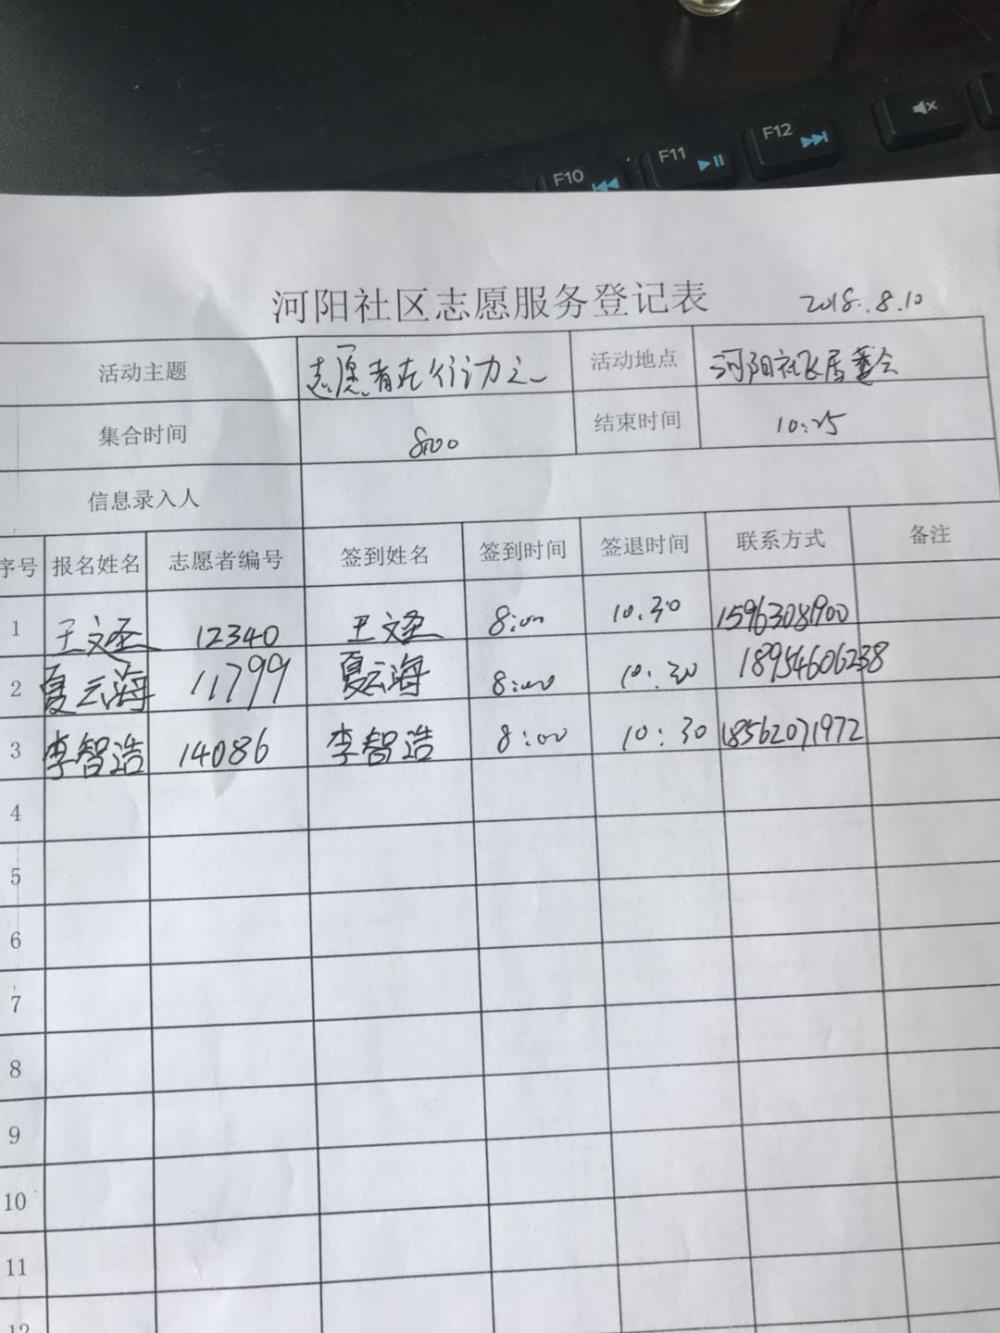 F10
F11
F12
河阳社区志愿服务登记表 2018.8.10
活动主题 志愿者在行动之一 活动地点 河阳社区居委会
集合时间 8:00 结束时间 10:25
信息录入人
序号 报名姓名 志愿者编号 签到姓名 签到时间 签退时间 联系方式 备注
1 王文圣 12340 王文圣 8:00 10:30 15963081900
2 夏云海 11799 夏云海 8:00 10:30 18954606238
3 李智造 14086 李智造 8:00 10:30 18562071972
4
5
6
7
8
9
10
11
12